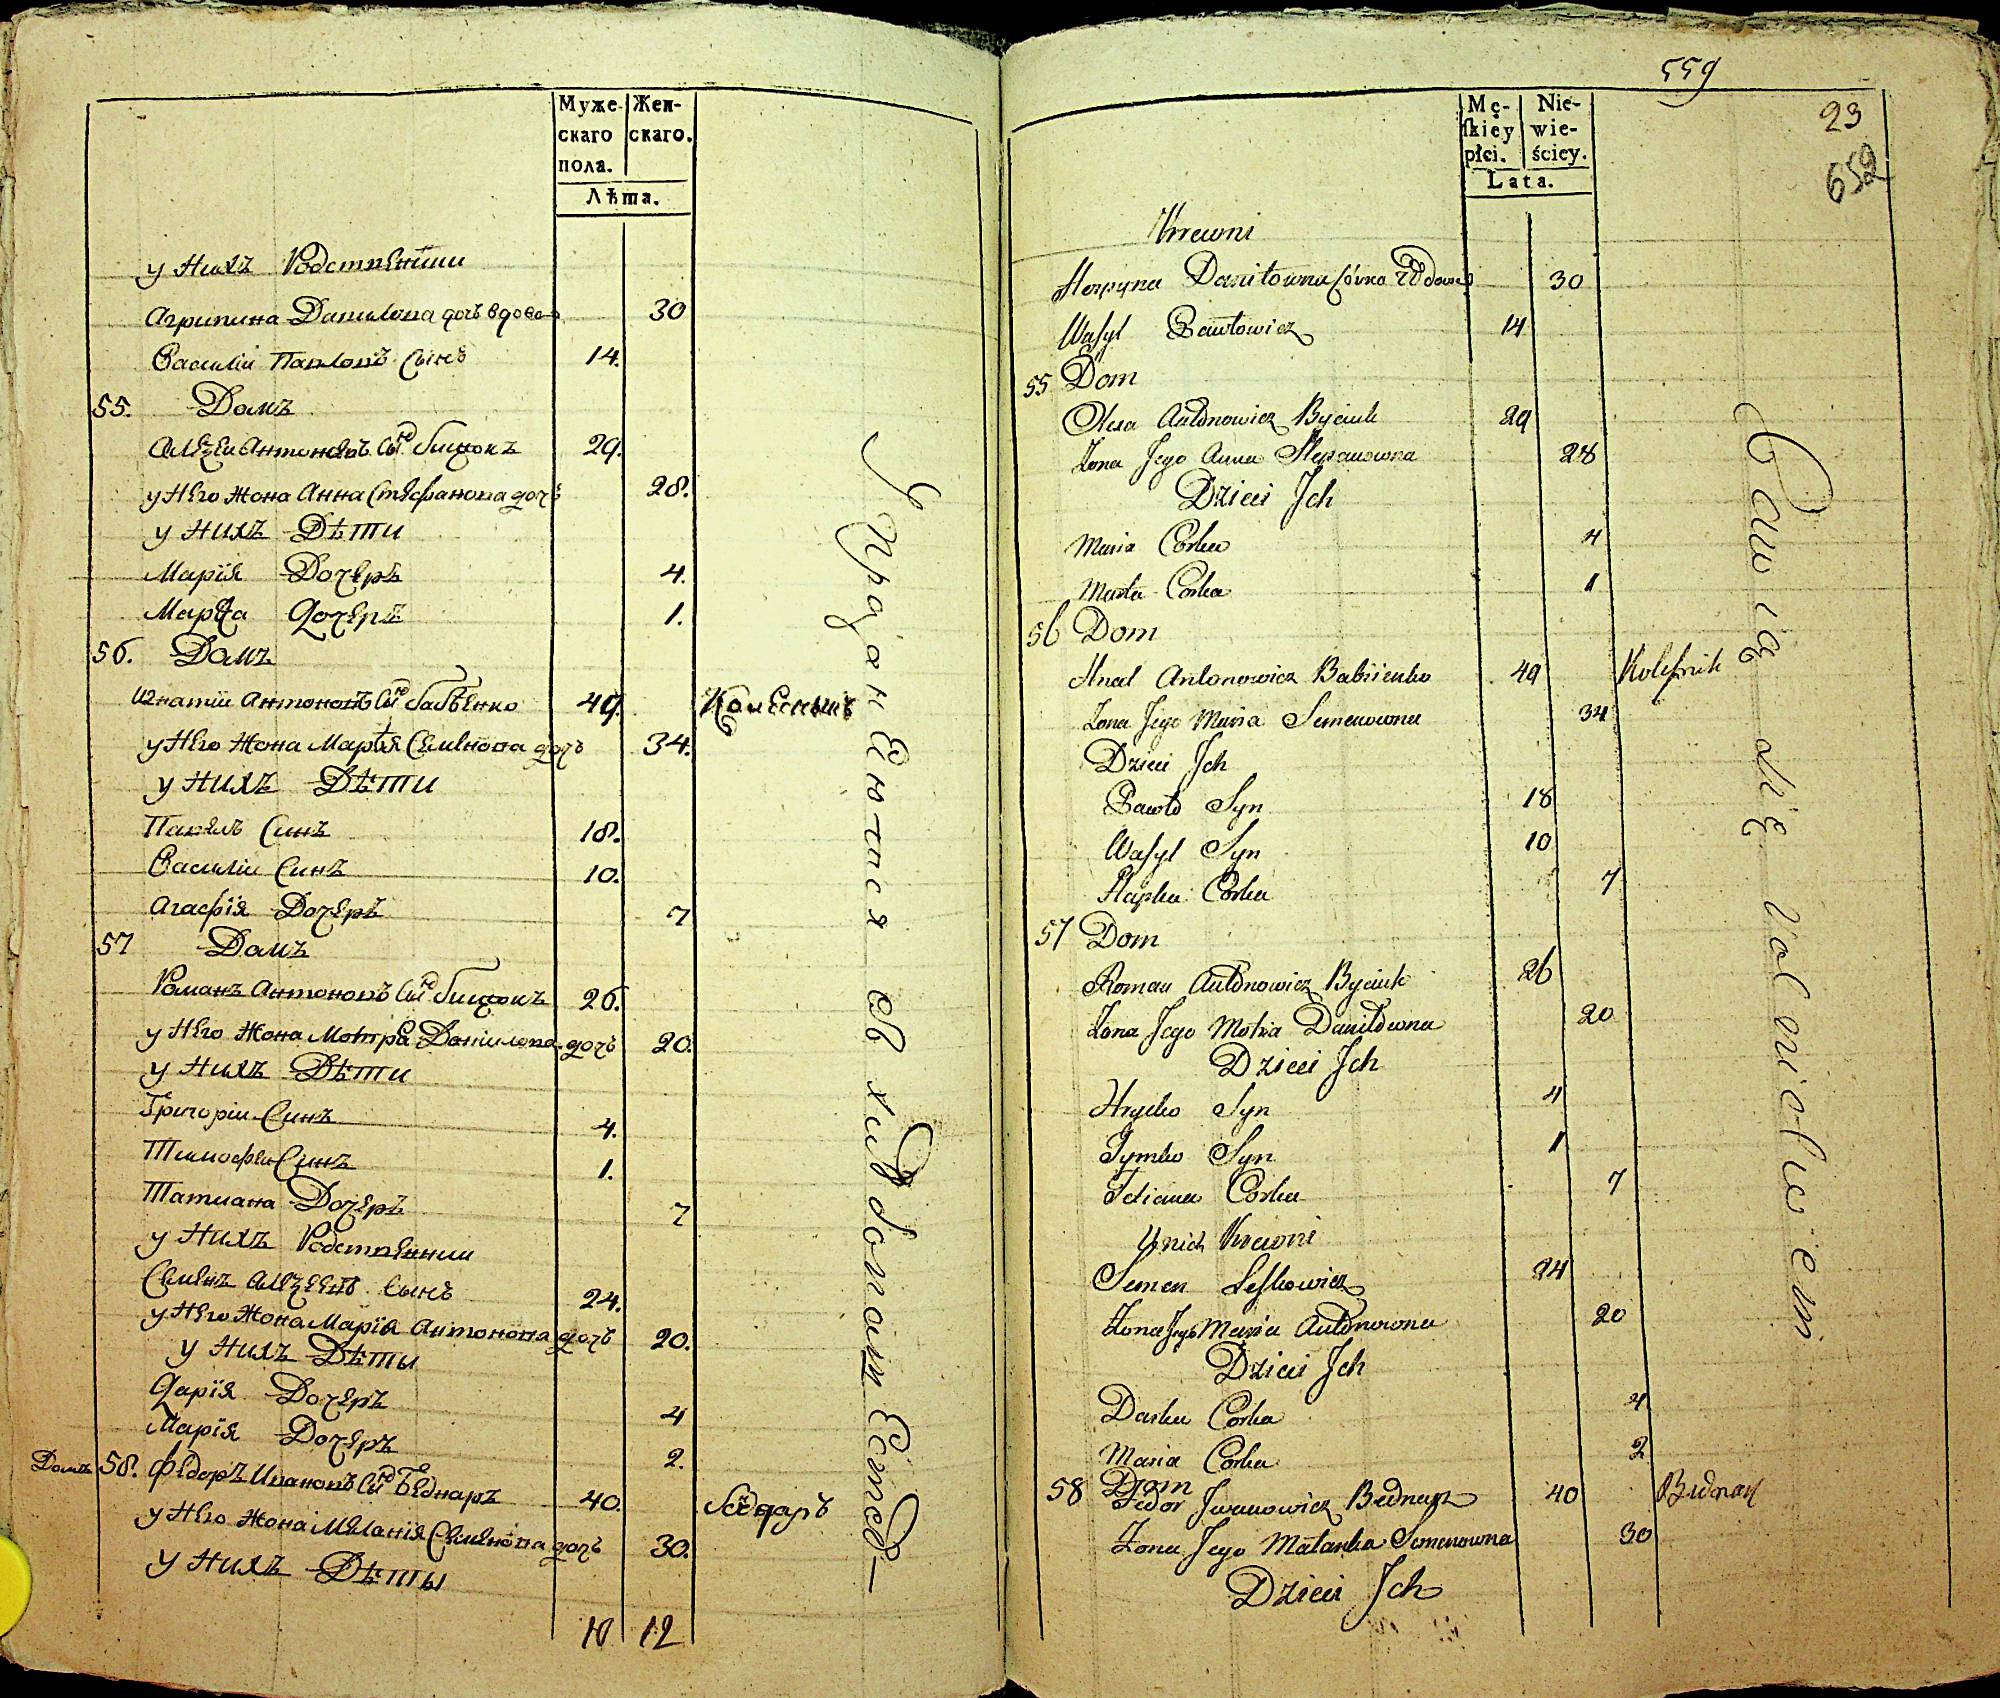 Муже-
скаго
пола.
Жен-
скаго.
Лѣта.
у нихъ Родственники
Агрипина Данилова дочь вдова 30
Василій Павловъ сынъ 14.
55. Домъ
Алеѯеи Антоновъ сынъ Бицюкъ 29.
у него жона Анна Стефанова дочь 28.
у нихъ Дѣти
Марїя Дочерь 4.
Марѳа дочерь 1.
56. Домъ
Игнатіи Антоновъ сынъ Бабѣенко 49. Колесникъ
у него жона Марїя Семенова дочь 34.
у нихъ Дѣти
Павелъ Синъ 18.
Василіи Синъ 10.
Агафїя Дочерь 7
57 Домъ
Романъ Антоновъ сынъ Бицюкъ 26.
у него жона Мотра Данилова дочь 20.
у нихъ Дѣти
Григоріи Синъ 4.
Тимофеи Синъ 1.
Татиана Дочерь 7
у нихъ Родственники
Семенъ Алеѯеевъ сынъ 24.
у него жона Марїя Антонова дочь 20.
у нихъ Дѣты
Дарїя Дочерь 4
Марїя Дочерь 2.
Домъ 58. Федоръ Ивановъ сынъ Беднаръ 40. Бодnаръ
у него жона Меланїя Семенова дочь 30.
у нихъ Дѣты
10 12
Упражнеются въ хлѣбопашестве
559
23
652
Mę-
skiey
płci.
Nie-
wie-
ściey.
Lata.
Krewni
Horpyna Daniłowna Córka Wdowa 30
Wasyl Pawłowicz 14
55 Dom
Olexa Antonowicz Byciuk 29
Zona Jego Anna Stepanowna 28
Dzieci Jch
Maria Corka 4
Marta Corka 1
56 Dom
Hnat Antonowicz Babiienko 49 Kolesnik
Zona Jego Maria Semenowna 34
Dzieci Jch
Pawło Syn 18
Wasyl Syn 10
Hapka Corka 7
57 Dom
Roman Antonowicz Byciuk 26
Zona Jego Motra Daniłowna 20
Dzieci Jch
Hrycko Syn 4
Tymko Syn 1
Tetiana Corka 7
U nich Krewni
Semen Leskowicz 24
Zona Jego Maria Antonowna 20
Dzieci Jch
Darka Corka 4
Maria Corka 2
58 Dom
Fedor Jwanowicz Bednarz 40 Bednarz
Zona Jego Małanka Semenowna 30
Dzieci Jch
Bawią się Rolnictwem